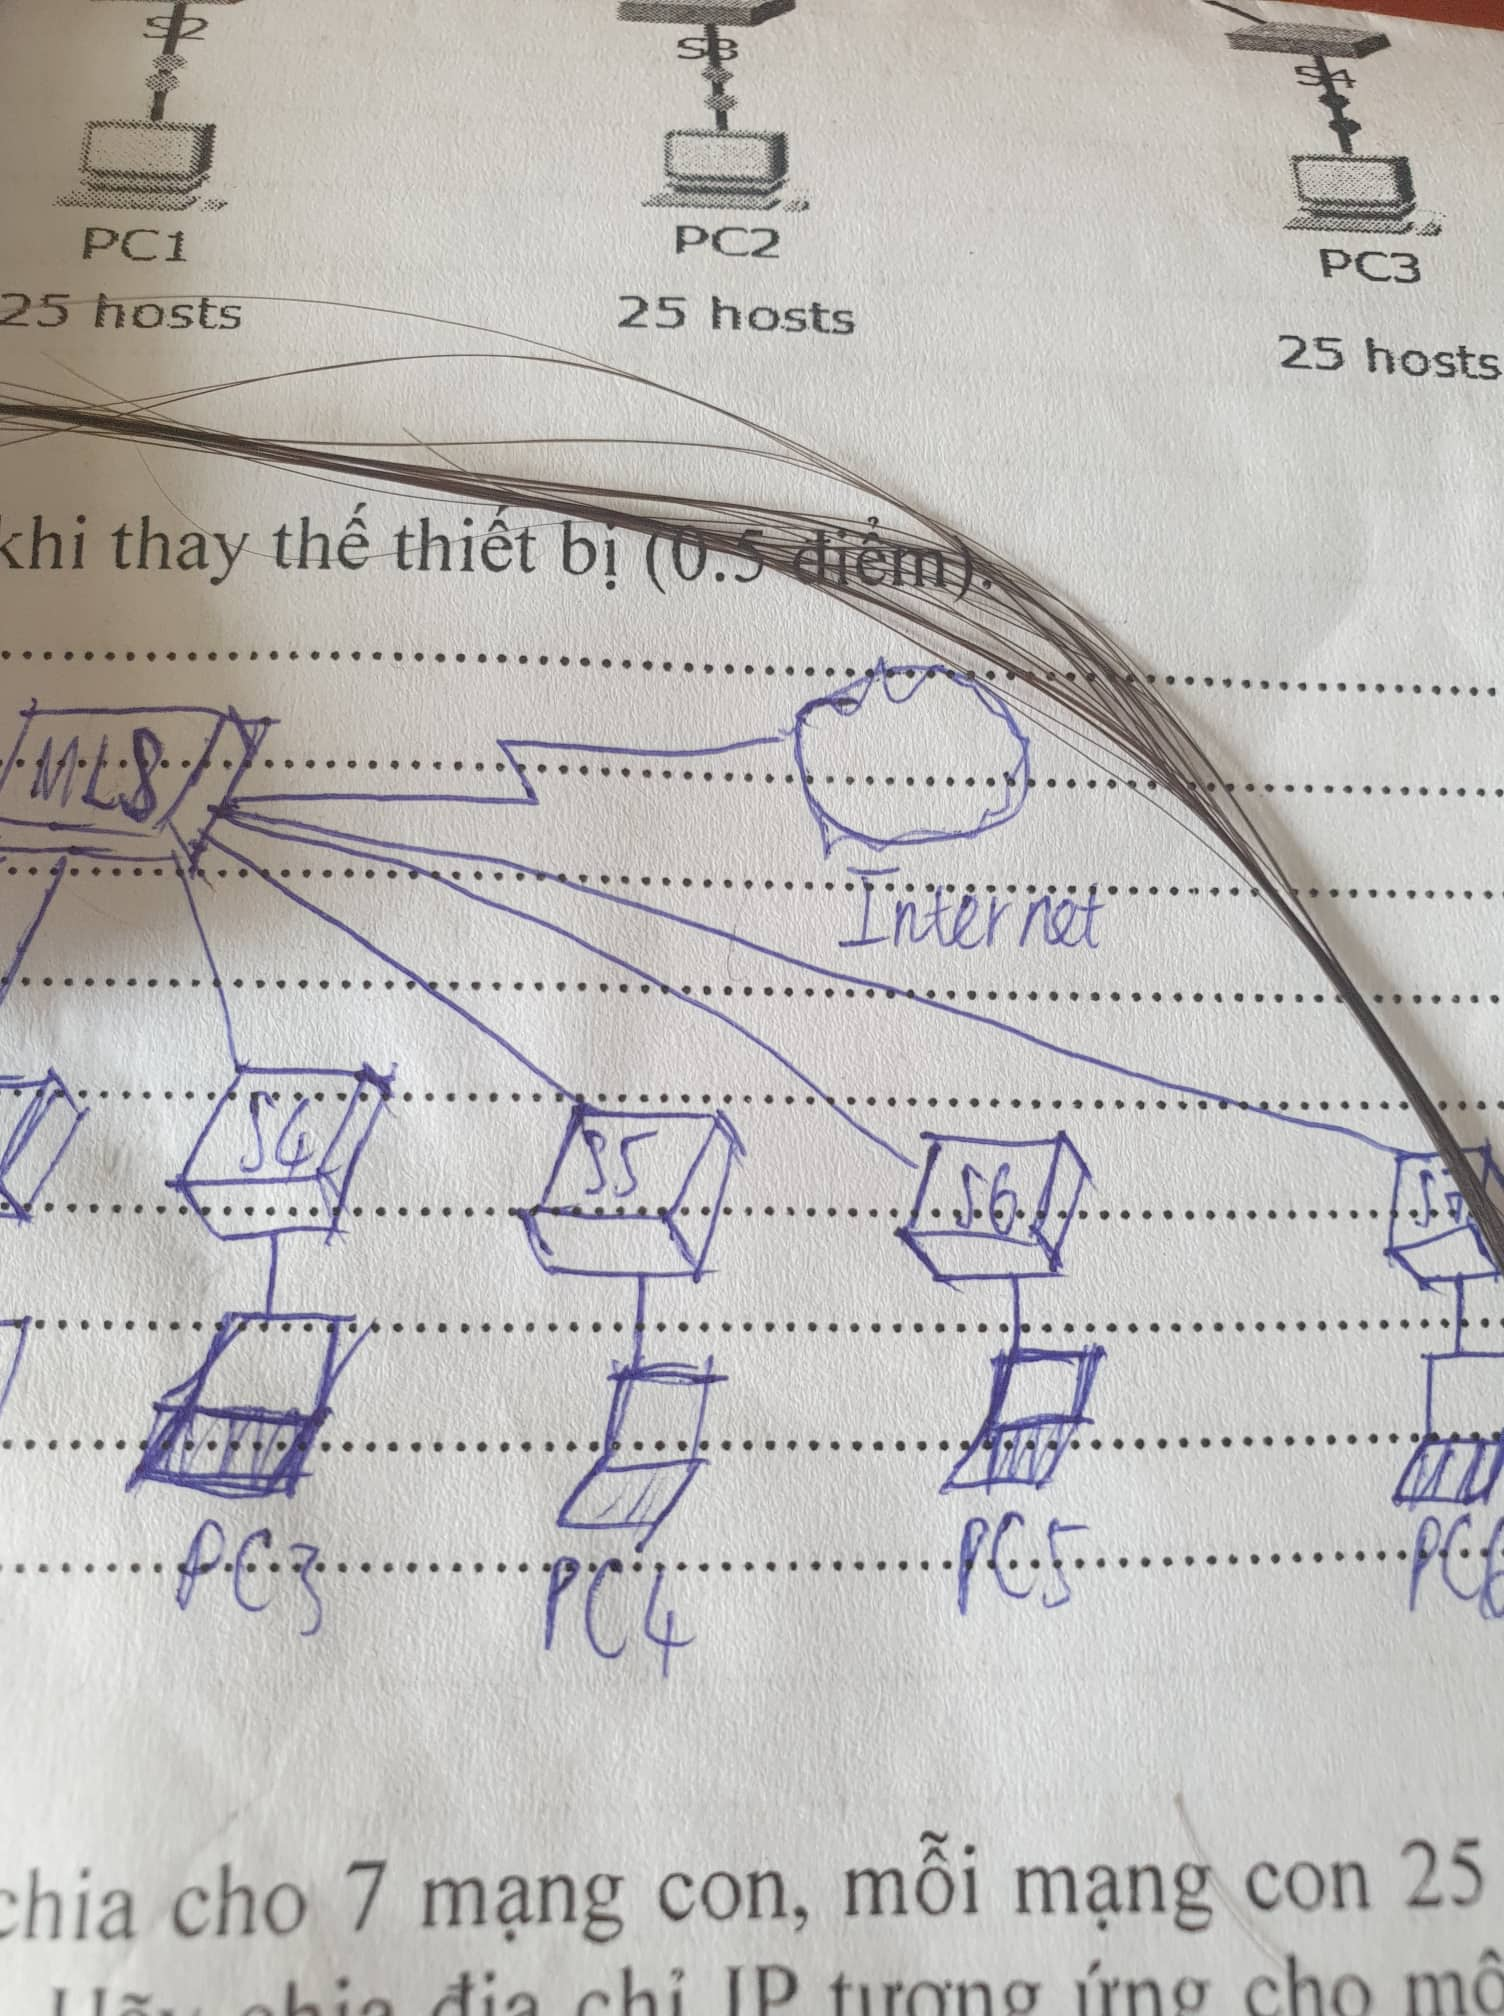 S2 S3 S4
PC1 PC2 PC3
25 hosts 25 hosts 25 hosts
khi thay thế thiết bị (0.5 điểm).
MLS
Internet
S4 S5 S6 S7
PC3 PC4 PC5 PC6
chia cho 7 mạng con, mỗi mạng con 25
Hãy chia địa chỉ IP tương ứng cho